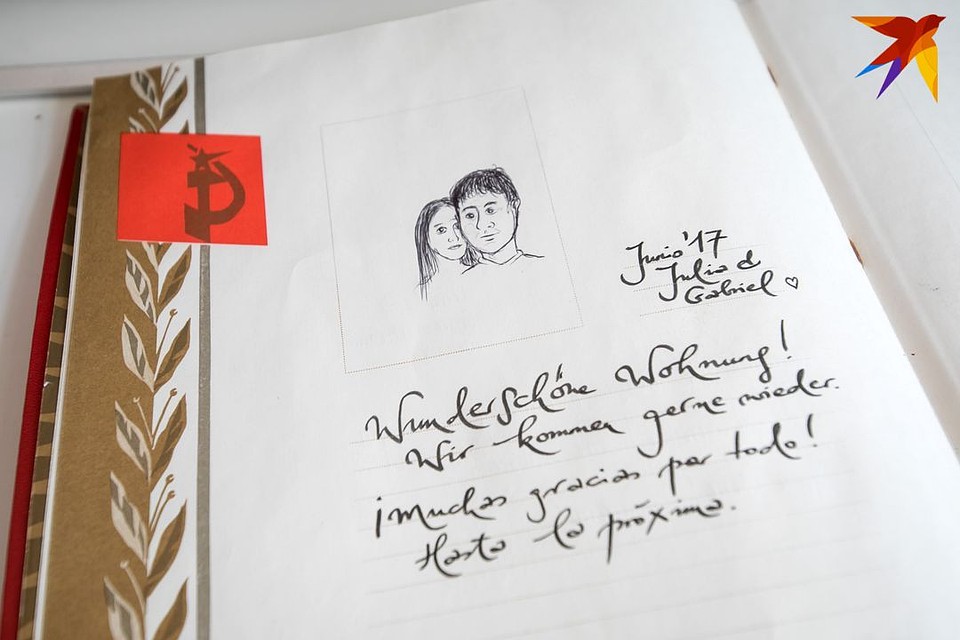 Junio '17
Julia &
Gabriel ♡
Wunderschöne Wohnung!
Wir kommen gerne wieder.
¡Muchas gracias por todo!
Hasta la próxima.